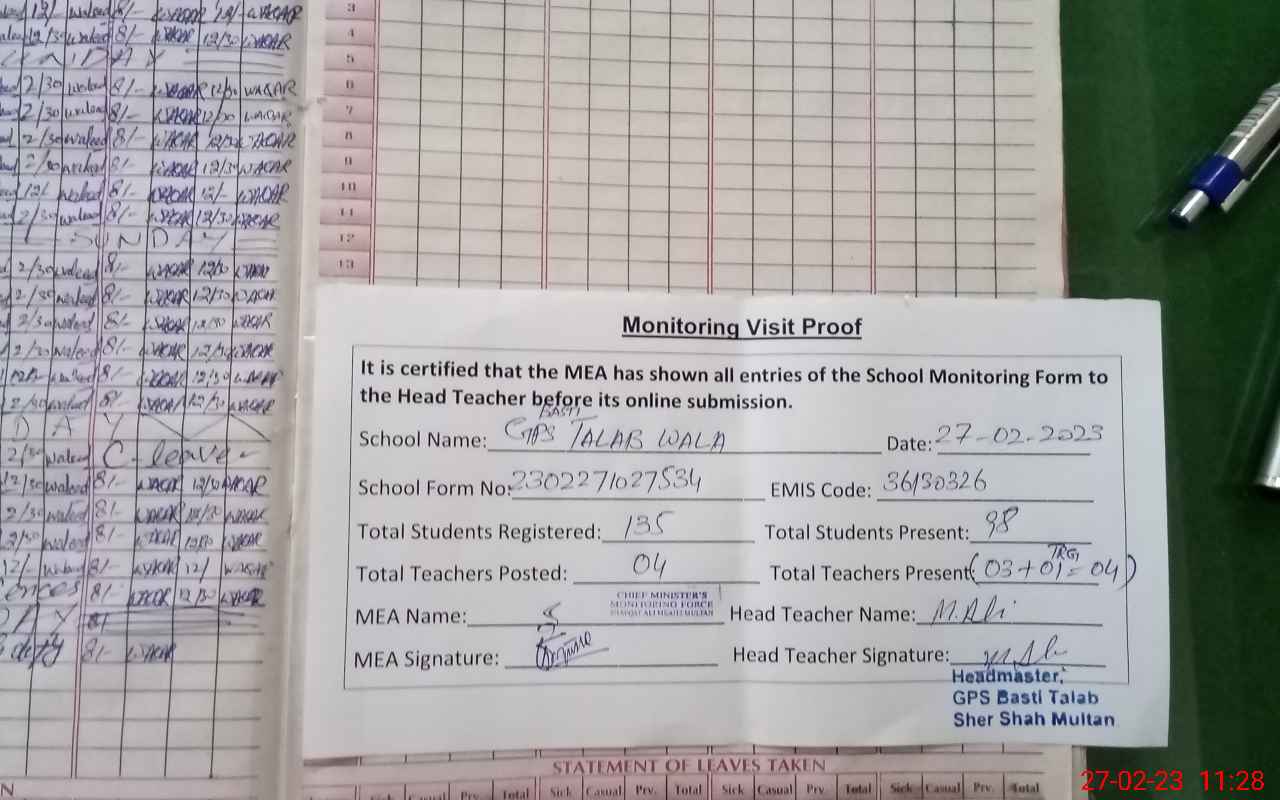 12/- waleed 8/- WAQAR 12/- WAQAR
12/30 waleed 8/- WAQAR 12/30 WAQAR
2/30 waleed 8/- WAQAR 12/30 WAQAR
2/30 waleed 8/- WAQAR 12/30 WAQAR
2/30 waleed 8/- WAQAR 12/30 WAQAR
2/30 waleed 8/- WAQAR 12/30 WAQAR
12/- waleed 8/- WAQAR 12/- WAQAR
2/30 waleed 8/- WAQAR 12/30 WAQAR
SUNDAY
2/30 waleed 8/- WAQAR 12/30 WAQAR
2/30 waleed 8/- WAQAR 12/30 WAQAR
2/30 waleed 8/- WAQAR 12/30 WAQAR
2/30 waleed 8/- WAQAR 12/30 WAQAR
waleed 8/- WAQAR 12/30 WAQAR
2/30 waleed 8/- WAQAR 12/30 WAQAR
D A Y
2/30 waleed C-leave
12/30 waleed 8/- WAQAR 12/30 WAQAR
2/30 waleed 8/- WAQAR 12/30 WAQAR
2/30 waleed 8/- WAQAR 12/30 WAQAR
12/- waleed 8/- WAQAR 12/ WAQAR
8/- WAQAR 12/30 WAQAR
DAY
duty 8/- WAQAR
3
4
5
6
7
8
9
10
11
12
13
Monitoring Visit Proof
It is certified that the MEA has shown all entries of the School Monitoring Form to
the Head Teacher before its online submission.
School Name: GPS BASTI TALAB WALA Date: 27-02-2023
School Form No: 2302271027534 EMIS Code: 36130326
Total Students Registered: 135 Total Students Present: 98
Total Teachers Posted: 04 Total Teachers Present (03 + 01 TRG = 04)
CHIEF MINISTER'S
MONITORING FORCE
MEA Name: Head Teacher Name: M.Ali
MEA Signature: Head Teacher Signature:
Headmaster,
GPS Basti Talab
Sher Shah Multan
STATEMENT OF LEAVES TAKEN
Sick Casual Prv. Total Sick Casual Prv. Total Sick Casual Prv. Total Sick Casual Prv. Total
27-02-23 11:28